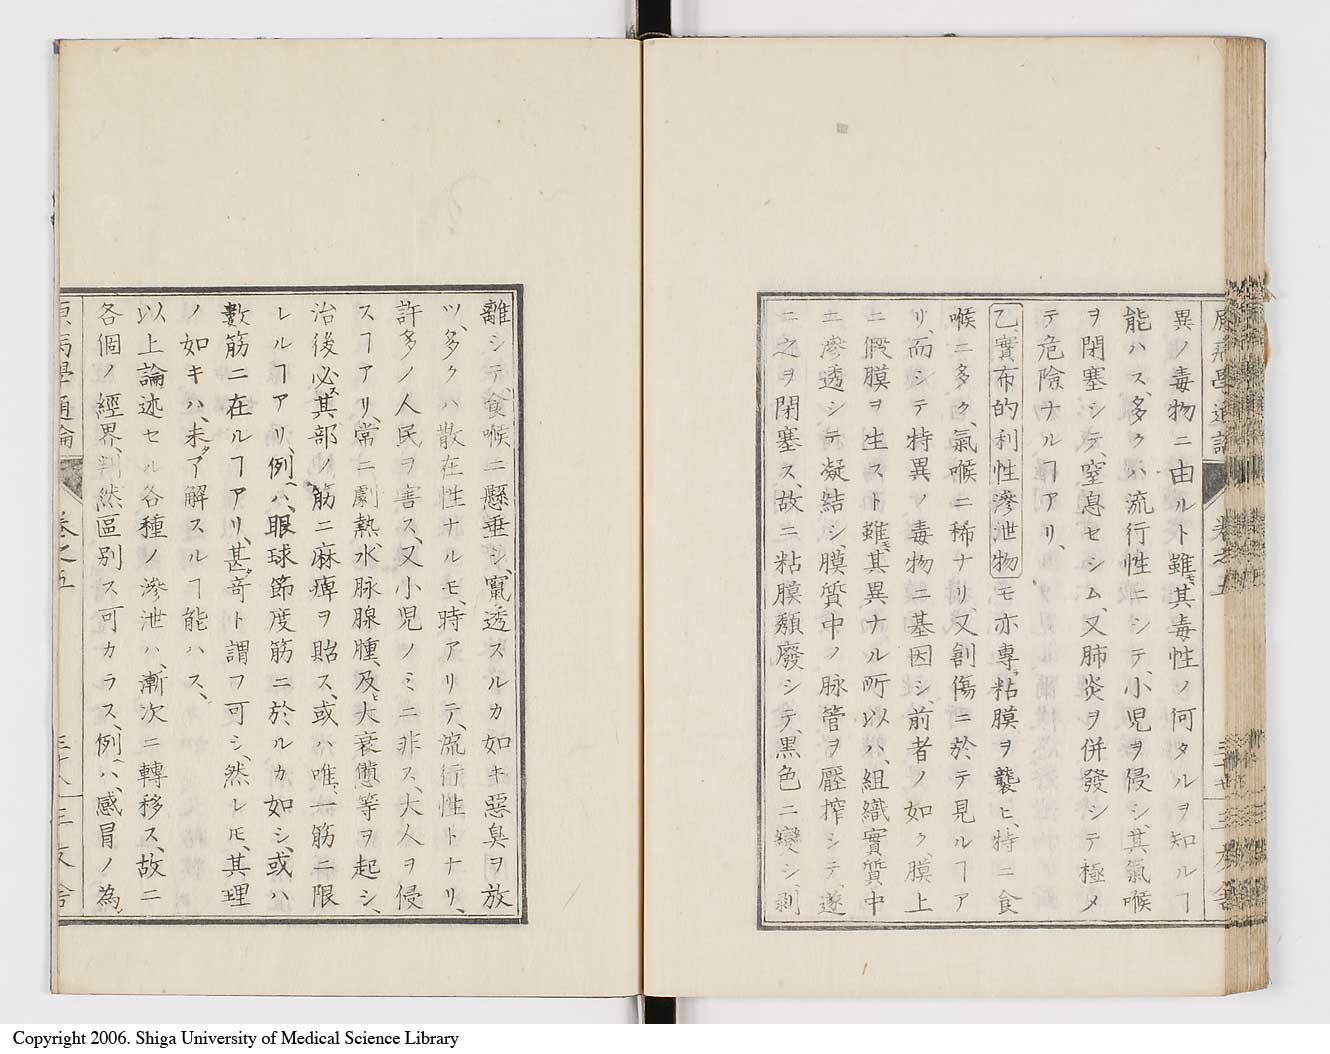 原病學通論
卷之五
異ノ毒物ニ由ルト雖モ、其毒性ノ何タルヲ知ルヿ
能ハス、多クハ流行性ニシテ、小児ヲ侵シ、其氣喉
ヲ閉塞シテ、窒息セシム、又肺炎ヲ併發シテ極メ
テ危險ナルヿアリ、
乙實布的利性滲泄物モ亦專ラ粘膜ヲ襲ヒ、特ニ食
喉ニ多ク、氣喉ニ稀ナリ、又創傷ニ於テ見ルヿア
リ、而シテ特異ノ毒物ニ基因シ、前者ノ如ク、膜上
ニ假膜ヲ生スト雖モ、其異ナル所以ハ、組織實質中
ニ滲透シテ凝結シ、膜質中ノ脉管ヲ壓搾シテ、遂
ニ之ヲ閉塞ス、故ニ粘膜頽廢シテ、黒色ニ變シ、剥
離シテ、食喉ニ懸垂シ、竄透スルカ如キ惡臭ヲ放
ツ、多クハ散在性ナルモ、時アリテ、流行性トナリ、
許多ノ人民ヲ害ス、又小児ノミニ非ス、大人ヲ侵
スヿアリ、常ニ劇熱、水脉腺腫、及ヒ大衰憊等ヲ起シ、
治後必ス其部ノ筋ニ麻痺ヲ貽ス、或ハ唯一筋ニ限
レルヿアリ、例ヘハ、眼球節度筋ニ於ルカ如シ、或ハ
數筋ニ在ルヿアリ、甚タ奇ト謂フ可シ、然レモ、其理
ノ如キハ、未タ了解スルヿ能ハス、
以上論述セル各種ノ滲泄ハ、漸次ニ轉移ス、故ニ
各個ノ經界、判然區別ス可カラス、例ヘハ、感冒ノ為
原病學通論
卷之五
三十八
三友舎
Copyright 2006. Shiga University of Medical Science Library